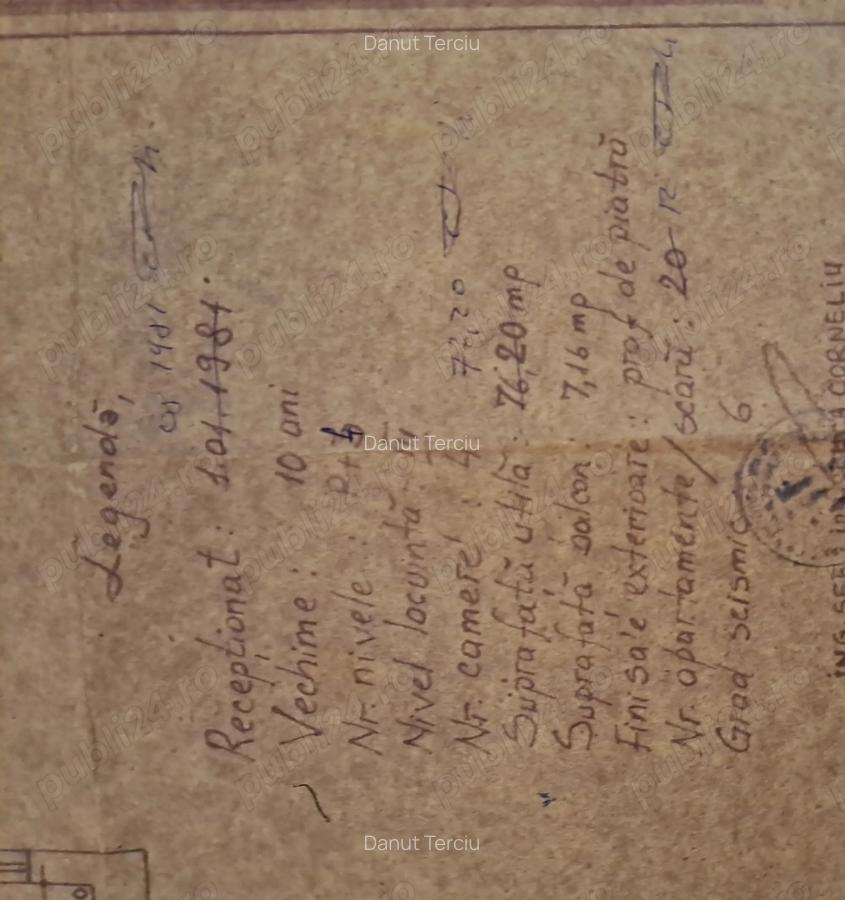 Legendă,
1981
Recepționat: 1.01.1981.
Vechime: 10 ani
Nr. nivele: P+4
Nivel locuință:
Nr. camere: 4
72,20
Suprafață utilă: 76,20 mp
Suprafață balcon: 7,16 mp
Finisaje exterioare: praf de piatră
Nr. apartamente/scară: 20 12
Grad seismic 6
CORNELIU
ING.
Danut Terciu
Danut Terciu
Danut Terciu
publi24.ro